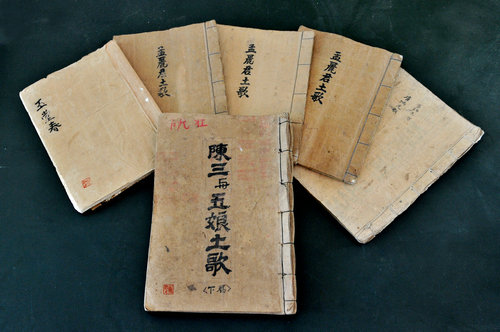 玉堂春
孟麗君土歌
孟麗君土歌
孟麗君土歌
陳三与五娘土歌